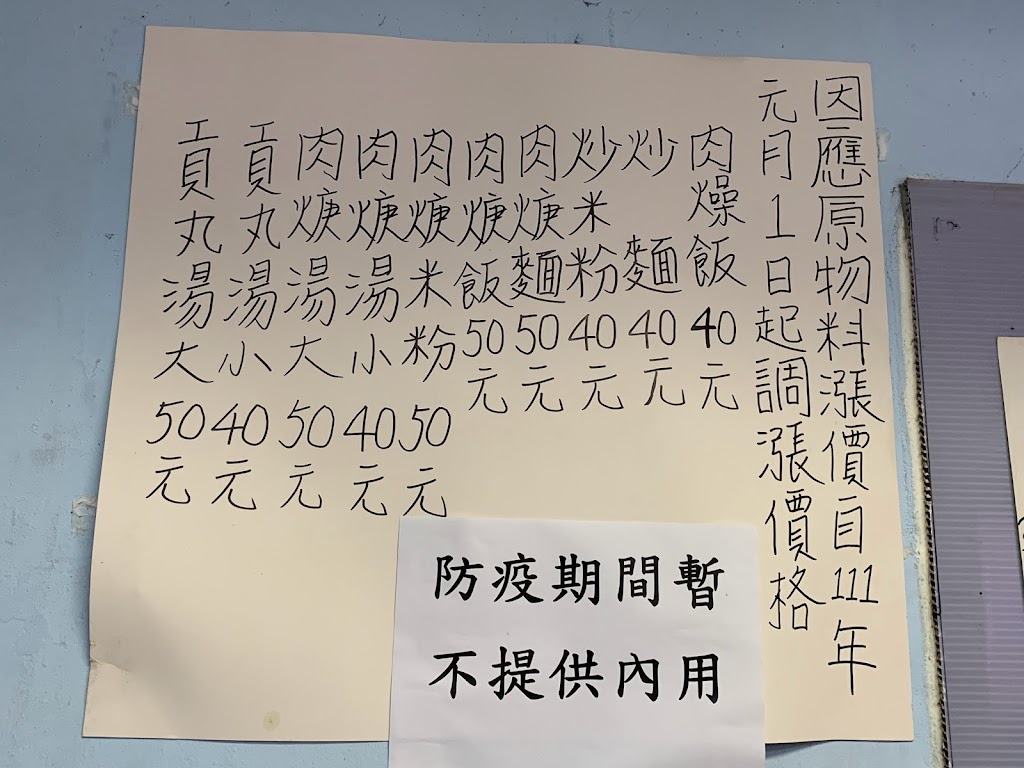 因應原物料漲價自111年
元月1日起調漲價格
肉燥飯40元
炒麵40元
炒米粉40元
肉焿麵50元
肉焿飯50元
肉焿米粉50元
肉焿湯小40元
肉焿湯大50元
貢丸湯小40元
貢丸湯大50元
防疫期間暫
不提供內用